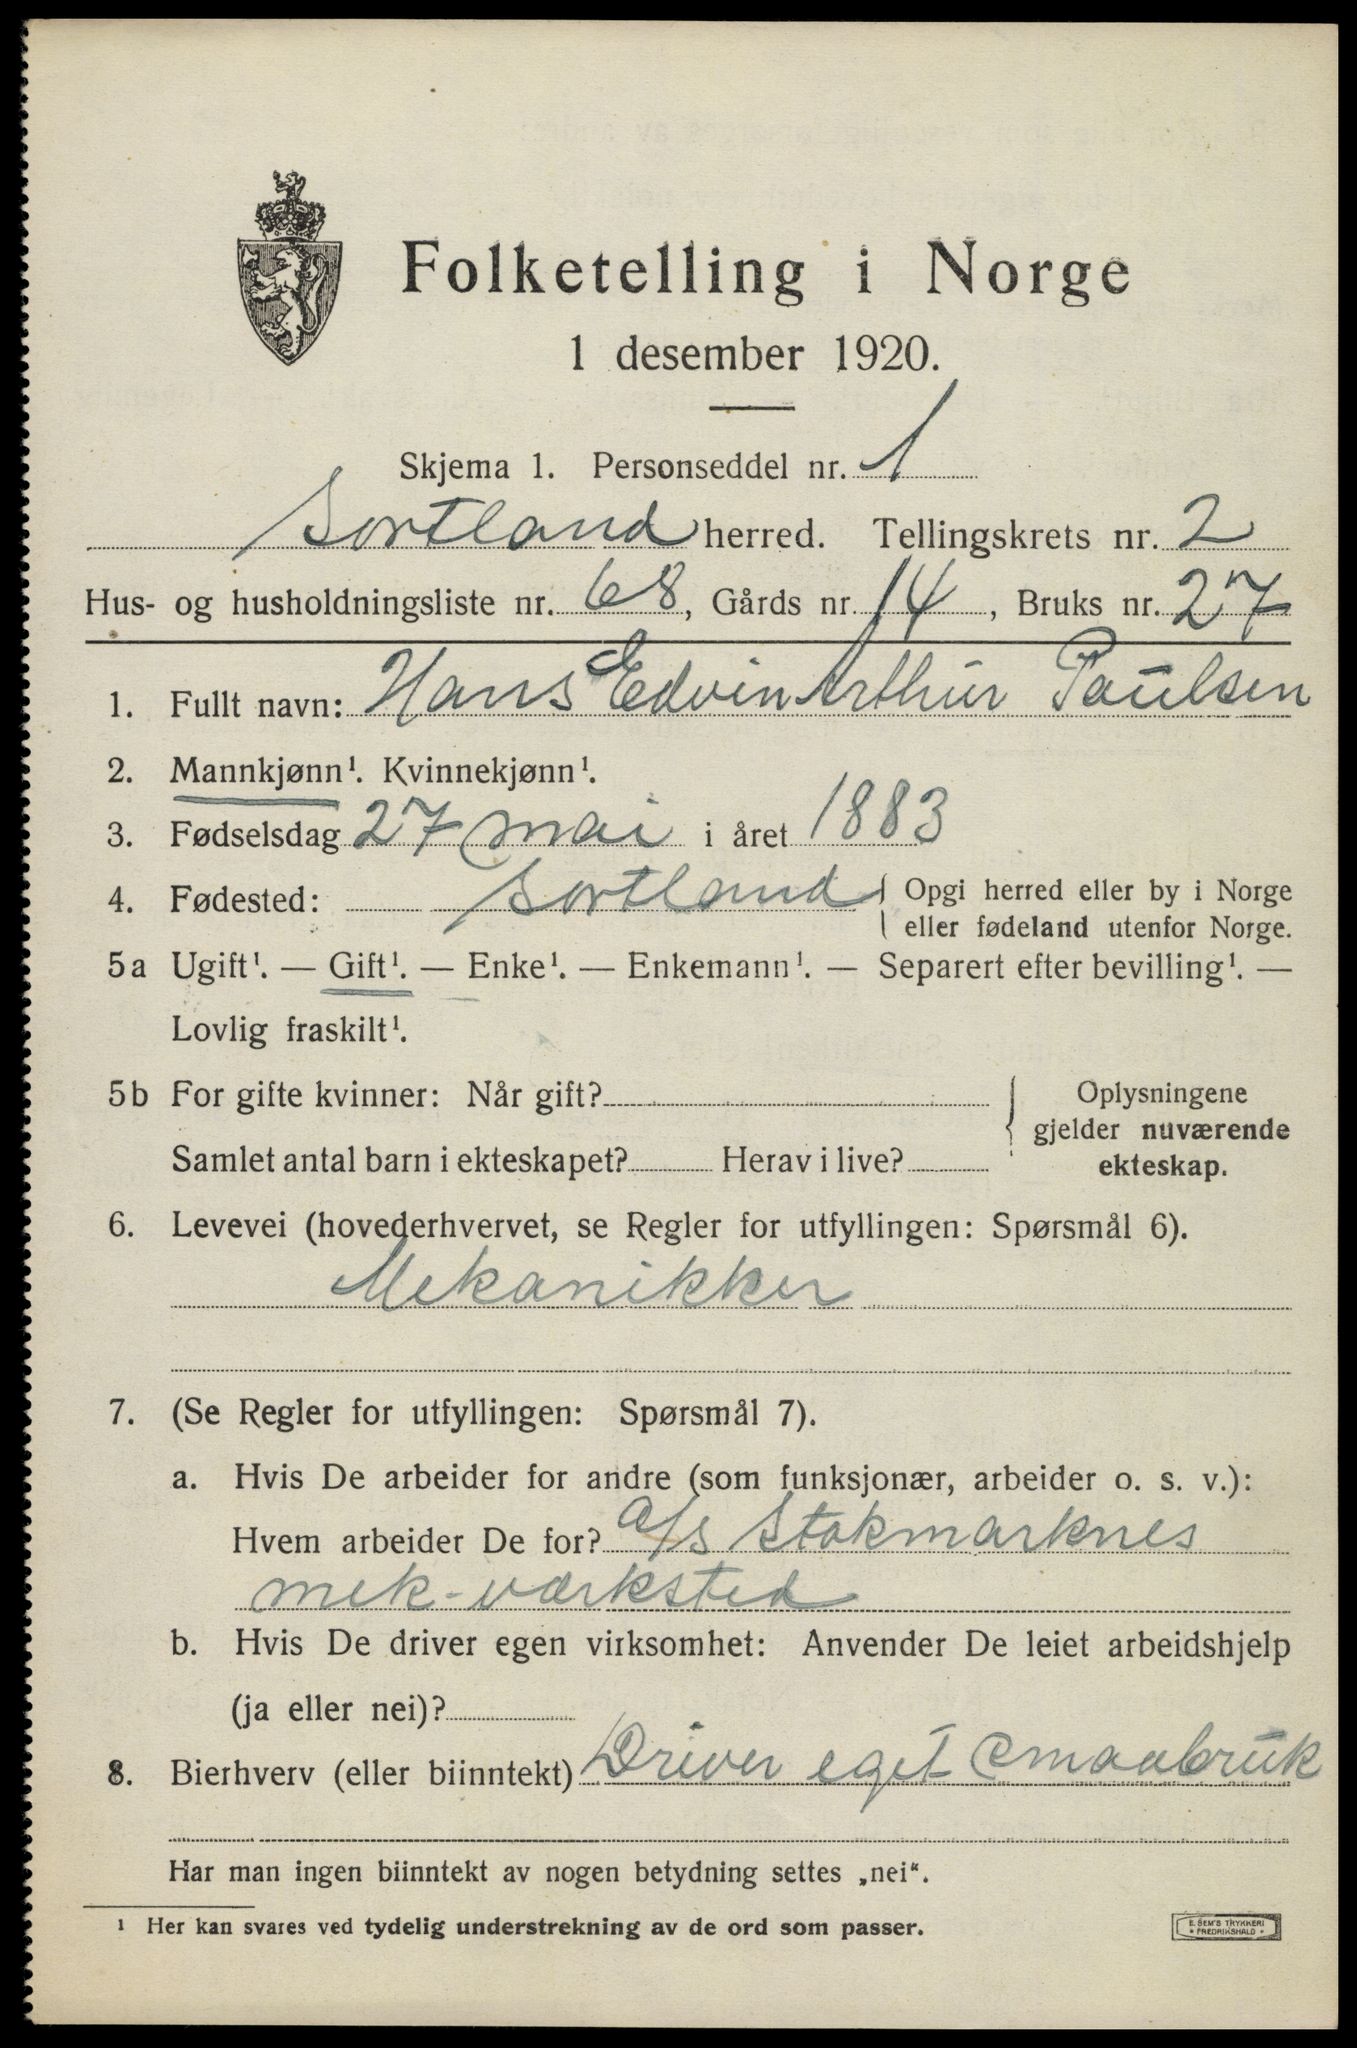 Folketelling i Norge
1 desember 1920.
Skjema 1. Personseddel nr. 1
Sortland herred. Tellingskrets nr. 2
Hus- og husholdningsliste nr. 68, Gårds nr. 14, Bruks nr. 27
1. Fullt navn: Hans Edvin Arthur Paulsen
2. Mannkjønn¹. Kvinnekjønn¹.
3. Fødselsdag 27 mai i året 1883
4. Fødested: Sortland { Opgi herred eller by i Norge
eller fødeland utenfor Norge.
5a Ugift¹. — Gift¹. — Enke¹. — Enkemann¹. — Separert efter bevilling¹. —
Lovlig fraskilt¹.
5b For gifte kvinner: Når gift?
Samlet antal barn i ekteskapet? Herav i live?
{ Oplysningene
gjelder nuværende
ekteskap.
6. Levevei (hovederhvervet, se Regler for utfyllingen: Spørsmål 6).
Mekanikker
7. (Se Regler for utfyllingen: Spørsmål 7).
a. Hvis De arbeider for andre (som funksjonær, arbeider o. s. v.):
Hvem arbeider De for? a/s Stokmarknes
mek-værksted
b. Hvis De driver egen virksomhet: Anvender De leiet arbeidshjelp
(ja eller nei)?
8. Bierhverv (eller biinntekt) Driver eget Smaabruk
Har man ingen biinntekt av nogen betydning settes „nei“.
¹ Her kan svares ved tydelig understrekning av de ord som passer.
E. SEM'S TRYKKERI
* FREDRIKSHALD *